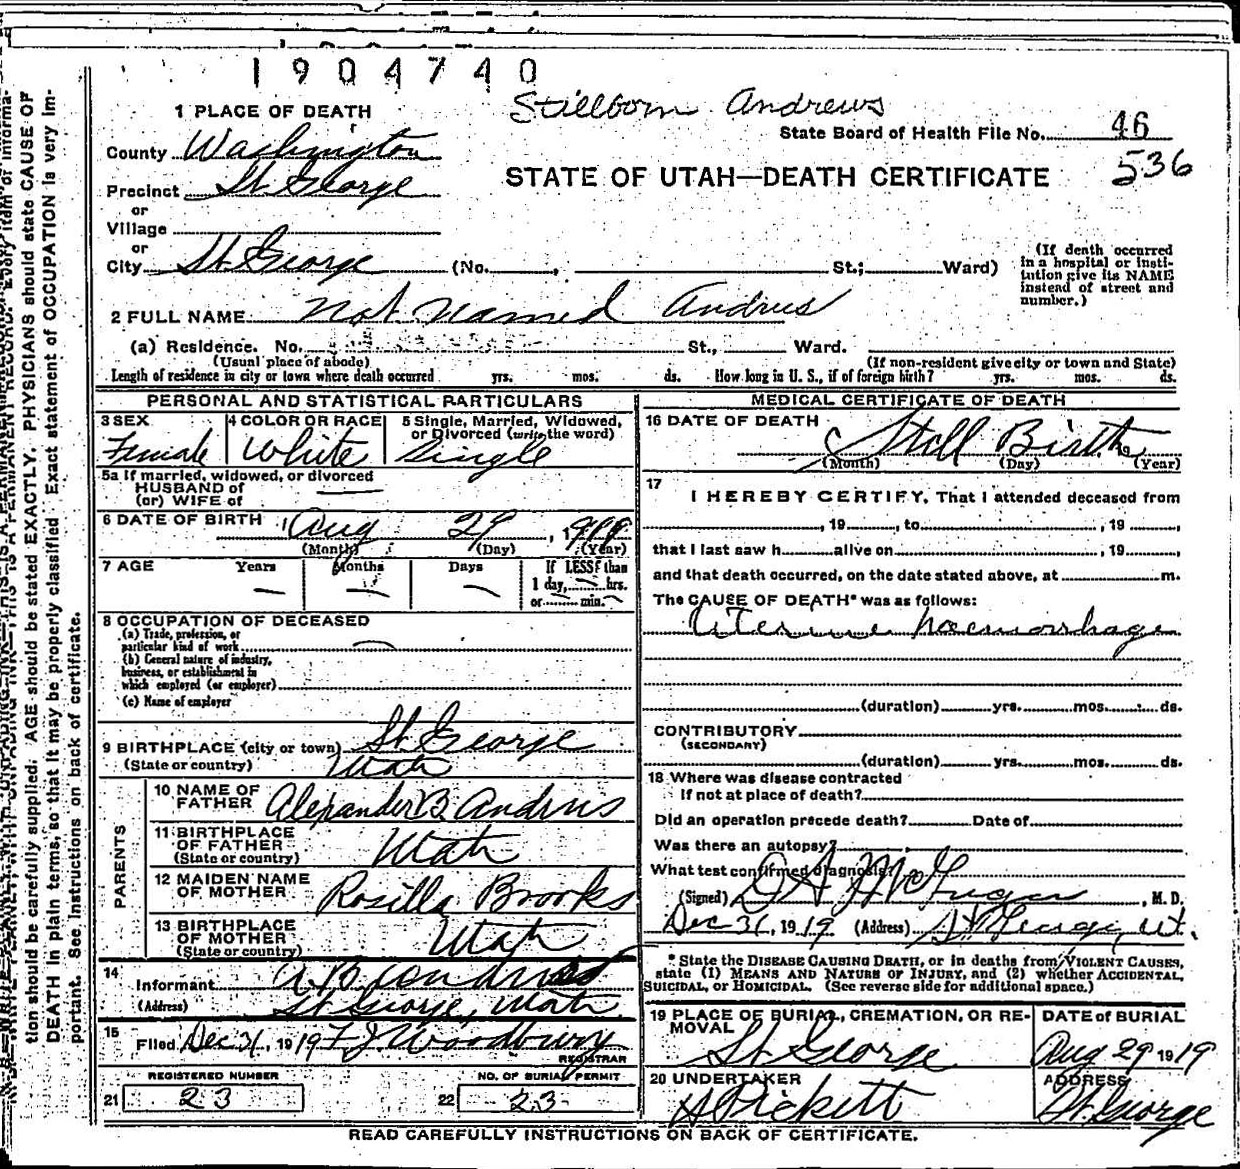 1904740
Stillborn Andrews
1 PLACE OF DEATH
State Board of Health File No. 46
County Washington
536
STATE OF UTAH—DEATH CERTIFICATE
Precinct St. George
or
Village
or
City St. George (No. , St.; Ward)
(If death occurred in a hospital or institution give its NAME instead of street and number.)
2 FULL NAME Not Named Andrus
(a) Residence. No. St., Ward.
(Usual place of abode) (If non-resident give city or town and State)
Length of residence in city or town where death occurred yrs. mos. ds. How long in U. S., if of foreign birth? yrs. mos. ds.
PERSONAL AND STATISTICAL PARTICULARS
3 SEX Female
4 COLOR OR RACE White
5 Single, Married, Widowed, or Divorced (write the word) Single
5a If married, widowed, or divorced
HUSBAND of
(or) WIFE of —
6 DATE OF BIRTH Aug 29, 1919
(Month) (Day) (Year)
7 AGE Years — Months — Days —
If LESS than
1 day, — hrs.
or min. —
8 OCCUPATION OF DECEASED
(a) Trade, profession, or
particular kind of work —
(b) General nature of industry,
business, or establishment in
which employed (or employer)
(c) Name of employer
9 BIRTHPLACE (city or town) St. George
(State or country) Utah
PARENTS
10 NAME OF FATHER Alexander B. Andrus
11 BIRTHPLACE OF FATHER
(State or country) Utah
12 MAIDEN NAME OF MOTHER Rosilla Brooks
13 BIRTHPLACE OF MOTHER
(State or country) Utah
14
Informant A. B. Andrus
(Address) St George, Utah
15
Filed Dec 31, 1919 F. J. Woodbury
REGISTRAR
REGISTERED NUMBER
21 23
NO. OF BURIAL PERMIT
22 23
MEDICAL CERTIFICATE OF DEATH
16 DATE OF DEATH Still Birth
(Month) (Day) (Year)
17
I HEREBY CERTIFY, That I attended deceased from
, 19 , to , 19 ,
that I last saw h alive on , 19 ,
and that death occurred, on the date stated above, at m.
The CAUSE OF DEATH* was as follows:
Uterine haemorrhage
(duration) yrs. mos. ds.
CONTRIBUTORY
(SECONDARY)
(duration) yrs. mos. ds.
18 Where was disease contracted
If not at place of death?
Did an operation precede death? Date of
Was there an autopsy?
What test confirmed diagnosis?
(Signed) D A McGregor, M. D.
Dec 31, 1919 (Address) St George, Ut.
* State the DISEASE CAUSING DEATH, or in deaths from VIOLENT CAUSES,
state (1) MEANS AND NATURE OF INJURY, and (2) whether ACCIDENTAL,
SUICIDAL, or HOMICIDAL. (See reverse side for additional space.)
19 PLACE OF BURIAL, CREMATION, OR REMOVAL St. George
DATE of BURIAL Aug 29 1919
20 UNDERTAKER A Pickett
ADDRESS St. George
READ CAREFULLY INSTRUCTIONS ON BACK OF CERTIFICATE.
tion should be carefully supplied. AGE should be stated EXACTLY. PHYSICIANS should state CAUSE OF
DEATH in plain terms, so that it may be properly classified. Exact statement of OCCUPATION is very im-
portant. See instructions on back of certificate.